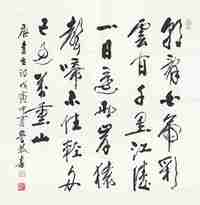 朝辭白帝彩
雲間千里江陵
一日還兩岸猿
聲啼不住輕舟
已過萬重山
李白詩戊寅